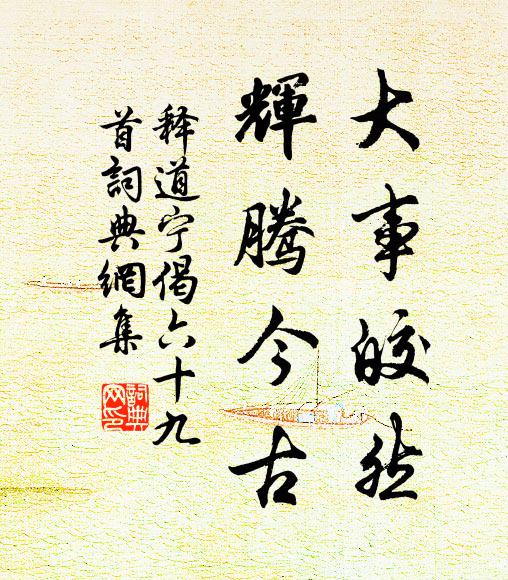 大事皎然
輝腾今古
释道宁偈六十九
首詞典網集
詞典
网印